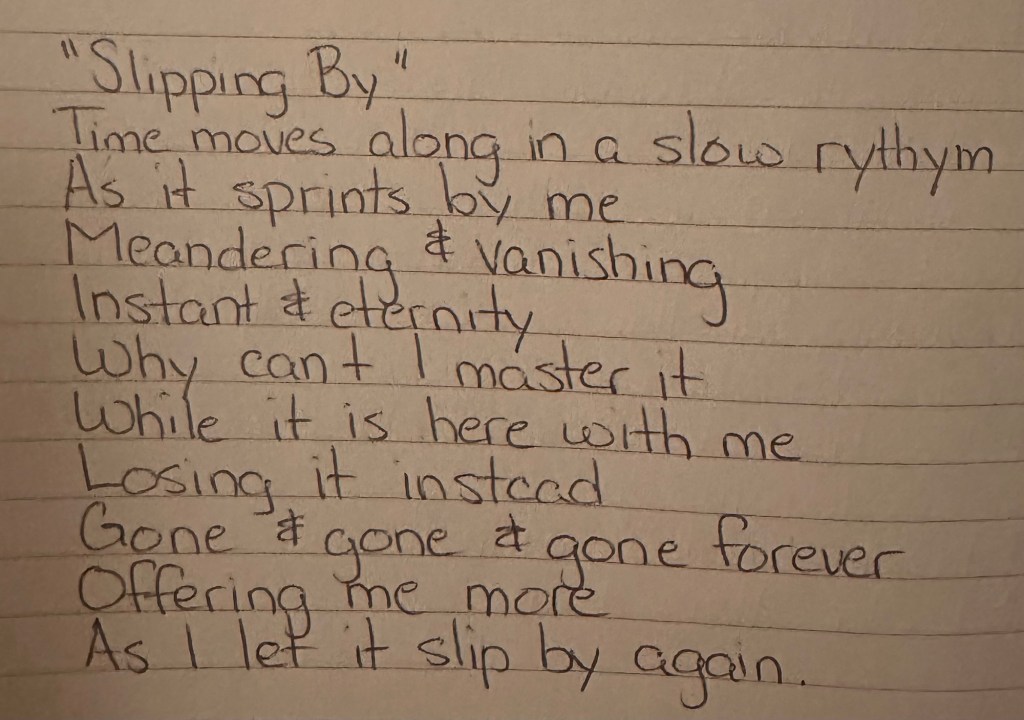 "Slipping By"
Time moves along in a slow rythym
As it sprints by me
Meandering & vanishing
Instant & eternity
Why can't I master it
While it is here with me
Losing it instead
Gone & gone & gone forever
Offering me more
As I let it slip by again.